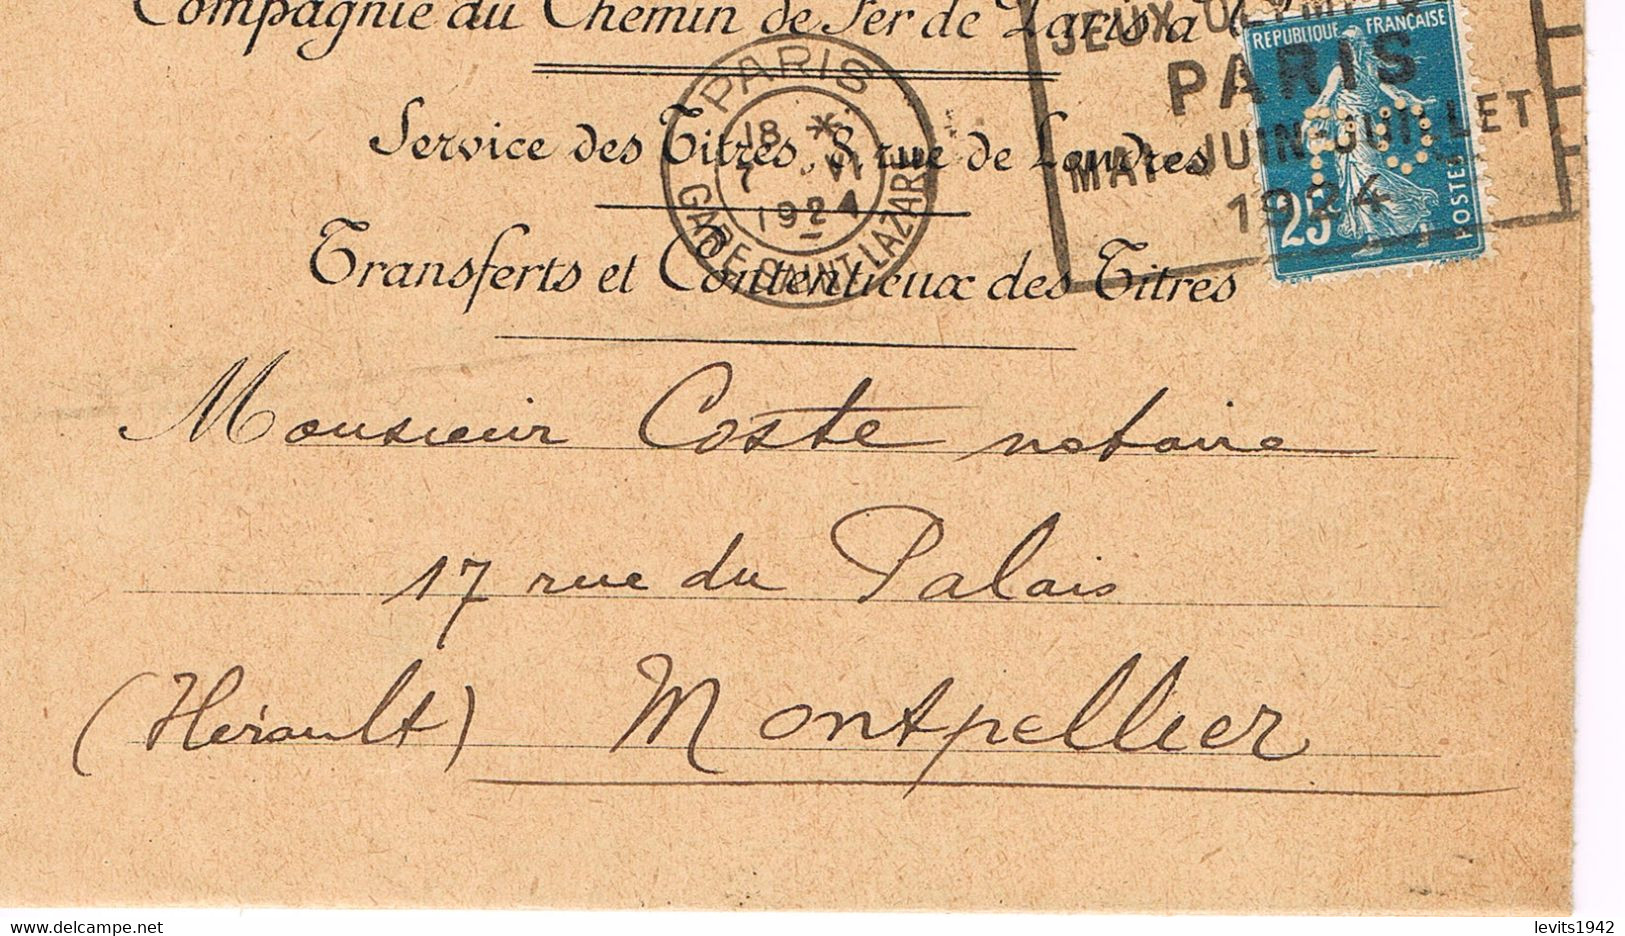 Compagnie du Chemin de Fer de Paris à
Service des Titres, 8, rue de Londres
Transferts et Contentieux des Titres
PARIS
18
7 VI
1924
GARE SAINT-LAZARE
JEUX OLYMPIQ
PARIS
MAI-JUIN-JUILLET
1924
REPUBLIQUE FRANÇAISE
25
POSTES
PO
Monsieur Coste notaire
17 rue du Palais
(Hérault) Montpellier
levits1942